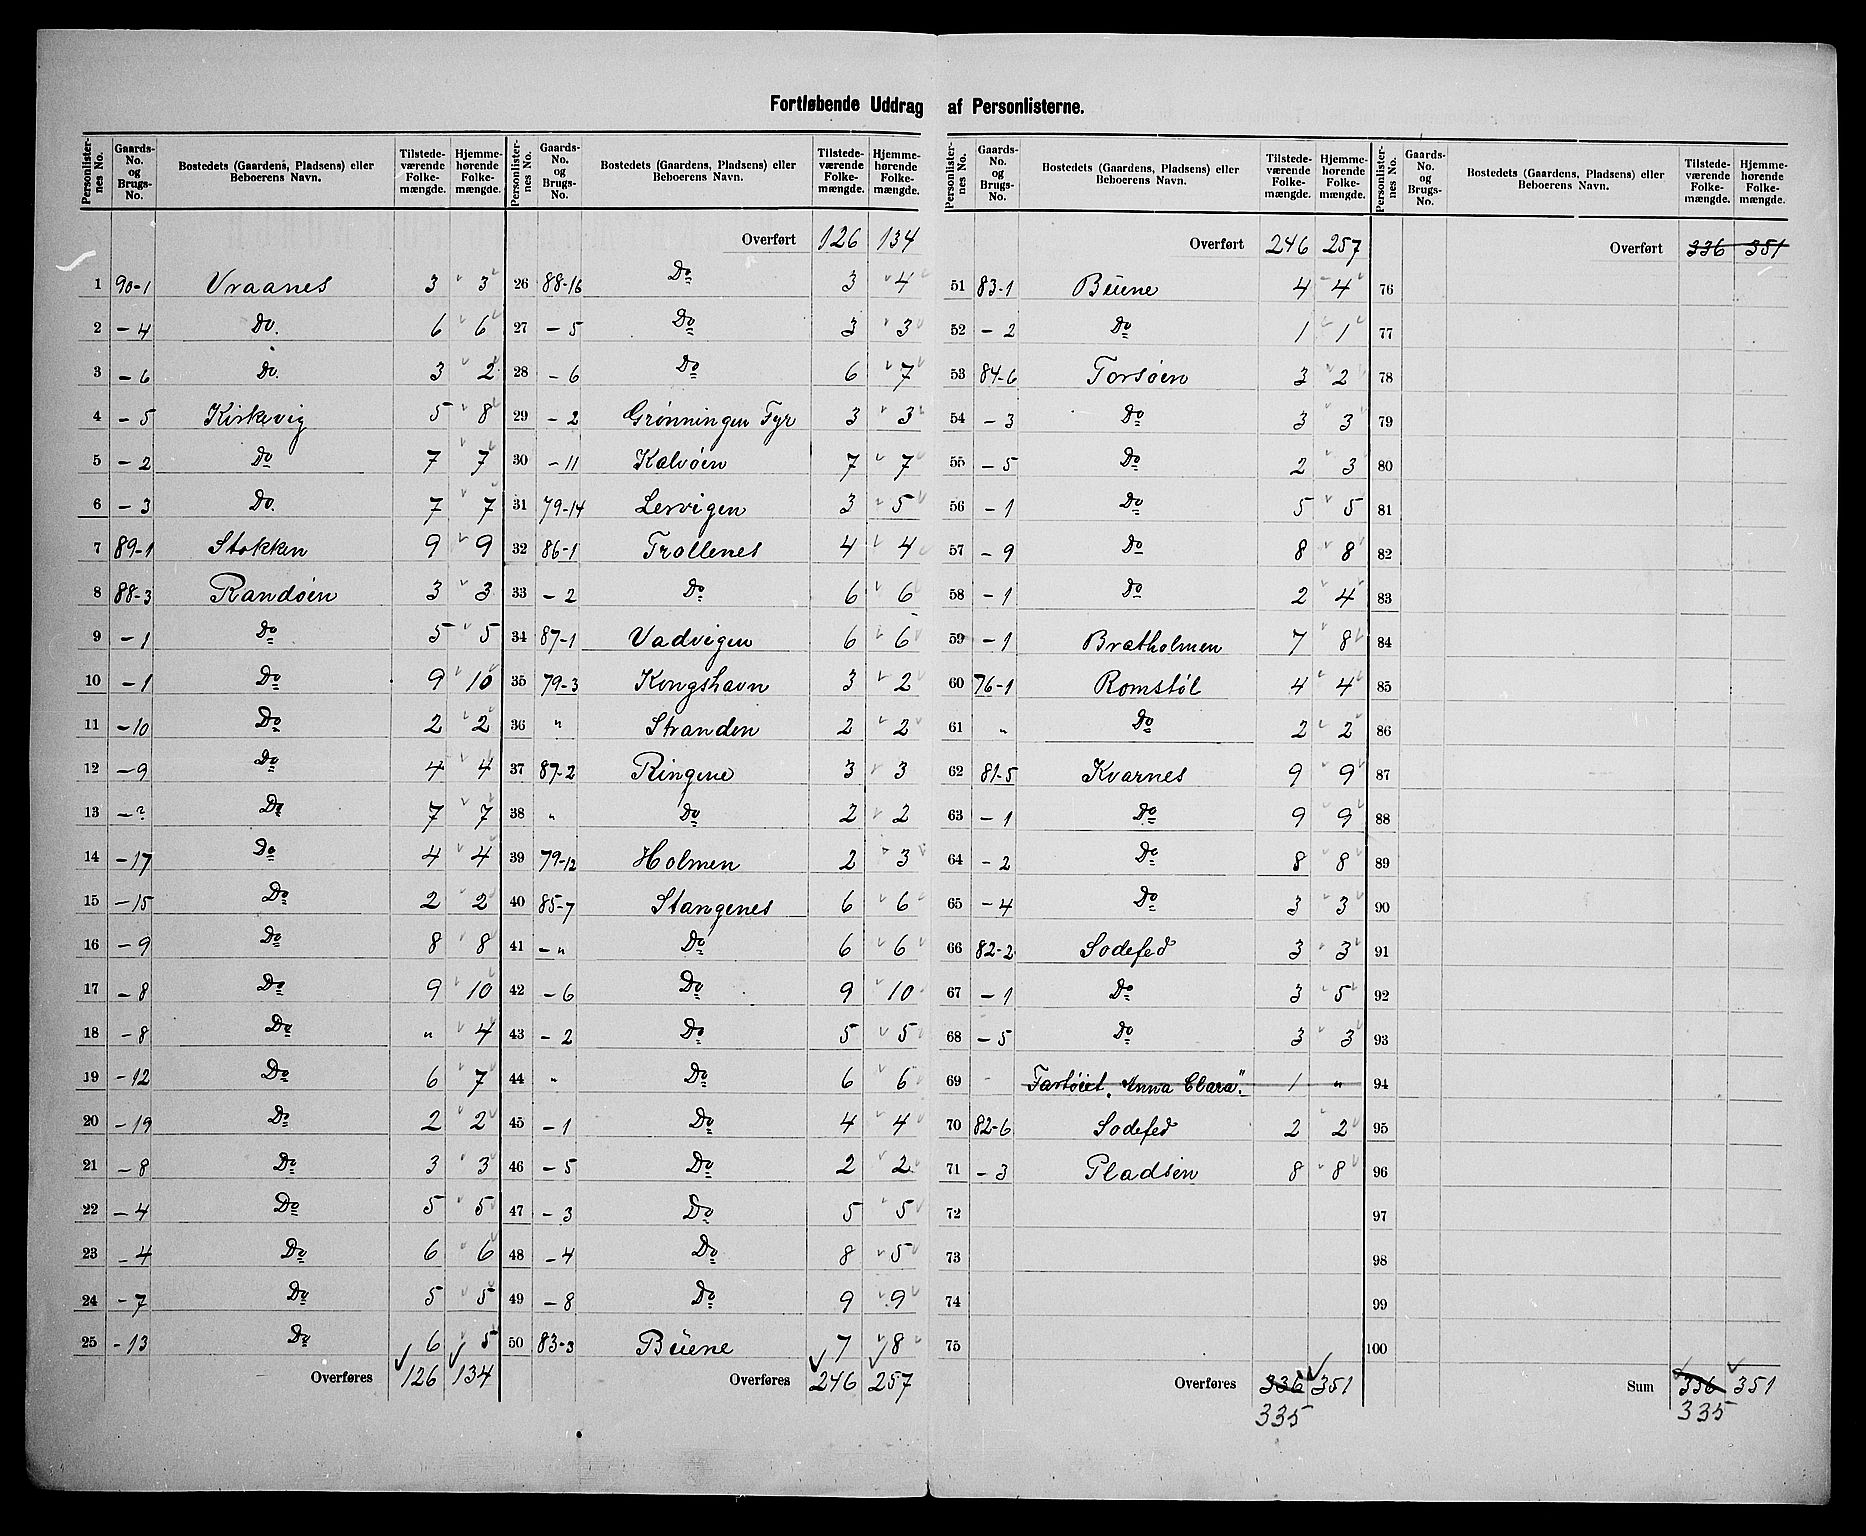 Fortløbende Uddrag af Personlisterne.
Personlister-nes No. | Gaards-No. og Brugs-No. | Bostedets (Gaardens, Pladsens) eller Beboerens Navn. | Tilstede-værende Folke-mængde. | Hjemme-hørende Folke-mængde.
1 90-1 Vraanes 3 3
2 -4 Do. 6 6
3 -6 Do. 3 2
4 -5 Kirkevig 5 8
5 -2 Do 7 7
6 -3 Do. 7 7
7 89-1 Stokken 9 9
8 88-3 Randøen 3 3
9 -1 Do 5 5
10 -1 Do 9 10
11 -10 Do 2 2
12 -9 Do 4 4
13 -? Do 7 7
14 -17 Do 4 4
15 -15 Do 2 2
16 -9 Do 8 8
17 -8 Do 9 10
18 -8 Do " 4
19 -12 Do 6 7
20 -19 Do 2 2
21 -8 Do 3 3
22 -4 Do 5 5
23 -4 Do 6 6
24 -7 Do 5 5
25 -13 Do 6 5
Overføres 126 134
Personlister-nes No. | Gaards-No. og Brugs-No. | Bostedets (Gaardens, Pladsens) eller Beboerens Navn. | Tilstede-værende Folke-mængde. | Hjemme-hørende Folke-mængde.
Overført 126 134
26 88-16 Do 3 4
27 -5 Do 3 3
28 -6 Do 6 7
29 -2 Grønningen Fyr 3 3
30 -11 Kalvøen 7 7
31 79-14 Lervigen 3 5
32 86-1 Trollenes 4 4
33 -2 Do 6 6
34 87-1 Vadvigen 6 6
35 79-3 Kongshavn 3 2
36 " Stranden 2 2
37 87-2 Ringene 3 3
38 " Do 2 2
39 79-12 Holmen 2 3
40 85-7 Stangenes 6 6
41 -" Do 6 6
42 -6 Do 9 10
43 -2 Do 5 5
44 " Do 6 6
45 -1 Do 4 4
46 -5 Do 2 2
47 -3 Do 5 5
48 -4 Do 8 5
49 -8 Do 9 9
50 83-3 Büene 7 8
Overføres 246 257
Personlister-nes No. | Gaards-No. og Brugs-No. | Bostedets (Gaardens, Pladsens) eller Beboerens Navn. | Tilstede-værende Folke-mængde. | Hjemme-hørende Folke-mængde.
Overført 246 257
51 83-1 Büene 4 4
52 -2 Do 1 1
53 84-6 Torsøen 3 2
54 -3 Do 3 3
55 -5 Do 2 3
56 -1 Do 5 5
57 -9 Do 8 8
58 -1 Do 2 4
59 -1 Bratholmen 7 8
60 76-1 Romstøl 4 4
61 " Do 2 2
62 81-5 Kvarnes 9 9
63 -1 Do 9 9
64 -2 Do 8 8
65 -4 Do 3 3
66 82-2 Sodefed 3 3
67 -1 Do 3 5
68 -5 Do 3 3
69 - Fartøiet "Anna Clara". 1 "
70 82-6 Sodefed 2 2
71 -3 Pladsen 8 8
72
73
74
75
Overføres 336 351
335
Personlister-nes No. | Gaards-No. og Brugs-No. | Bostedets (Gaardens, Pladsens) eller Beboerens Navn. | Tilstede-værende Folke-mængde. | Hjemme-hørende Folke-mængde.
Overført 336 351
76
77
78
79
80
81
82
83
84
85
86
87
88
89
90
91
92
93
94
95
96
97
98
99
100
Sum 336 351
335